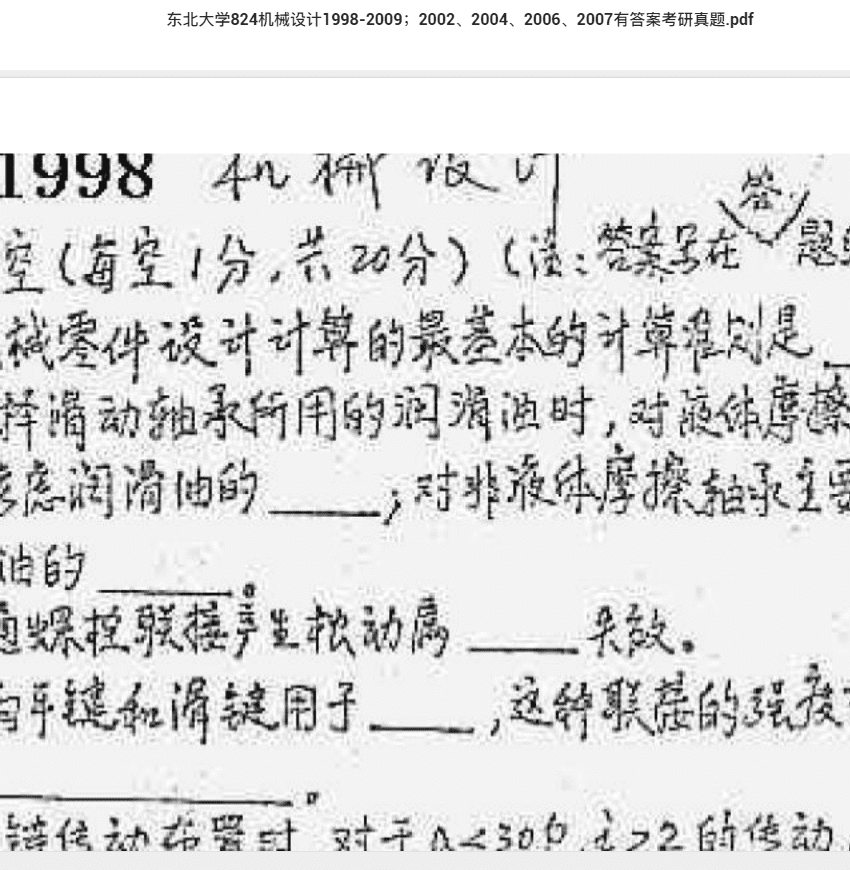 东北大学824机械设计1998-2009；2002、2004、2006、2007有答案考研真题.pdf
1998 机械设计
空(每空1分,共20分)(注:答案写在 答 题
械零件设计计算的最基本的计算准则是
择滑动轴承所用的润滑油时,对液体摩擦
考虑润滑油的____;对非液体摩擦轴承主要
油的____。
通螺栓联接产生松动属____失效。
向平键和滑键用于____,这种联接的强度
____。
链传动布置时 对于a<30p i>2的传动